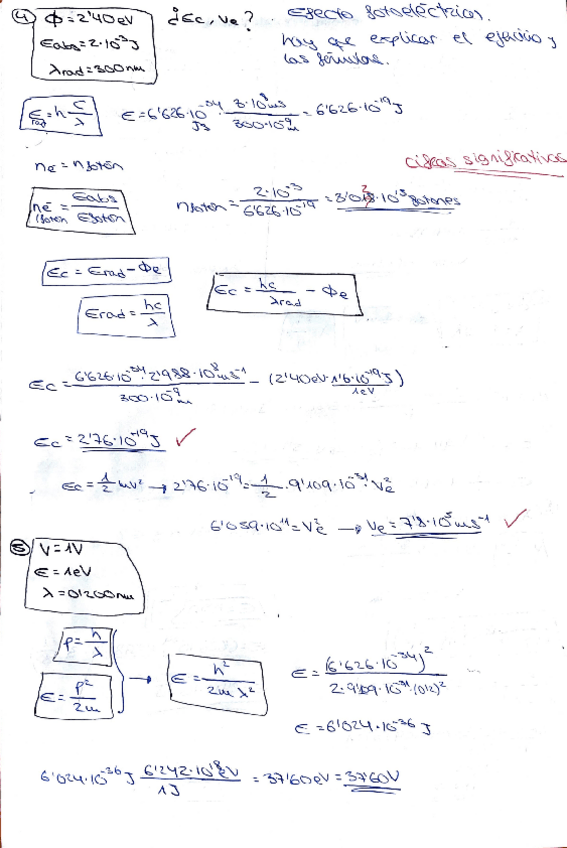 ④ Φ=2'40eV ¿Ec, ve? Efecto fotoeléctrico.
Eabs=2·10⁻³J hay que explicar el ejercicio y
λrad=300nm las fórmulas.
Erad=h c/λ E=6'626·10⁻³⁴Js · 3·10⁸m/s / 300·10⁻⁹m = 6'626·10⁻¹⁹J
ne = nfotón cifras significativas
ne⁻ = Eabs/Efotón nfotón = 2·10⁻³ / 6'626·10⁻¹⁹ = 3'018·10¹⁵ fotones
Ec = Erad - Φe
Erad = hc/λ Ec = hc/λrad - Φe
Ec = 6'626·10⁻³⁴·2'988·10⁸ms⁻¹ / 300·10⁻⁹m - (2'40eV·1'6·10⁻¹⁹J / 1eV)
Ec = 2'76·10⁻¹⁹J ✓
Ec = 1/2 mv² → 2'76·10⁻¹⁹ = 1/2 · 9'109·10⁻³¹·ve²
6'059·10¹¹ = ve² → ve = 7'8·10⁵ms⁻¹ ✓
⑤ V=1V
E=1eV
λ=0'200nm
p=h/λ
E=p²/2m → E=h²/2mλ² E=(6'626·10⁻³⁴)² / 2·9'109·10⁻³¹·(0'2)²
E=6'024·10⁻³⁶J
6'024·10⁻³⁶J · 6'242·10¹⁸eV / 1J = 37'60eV = 37'60V